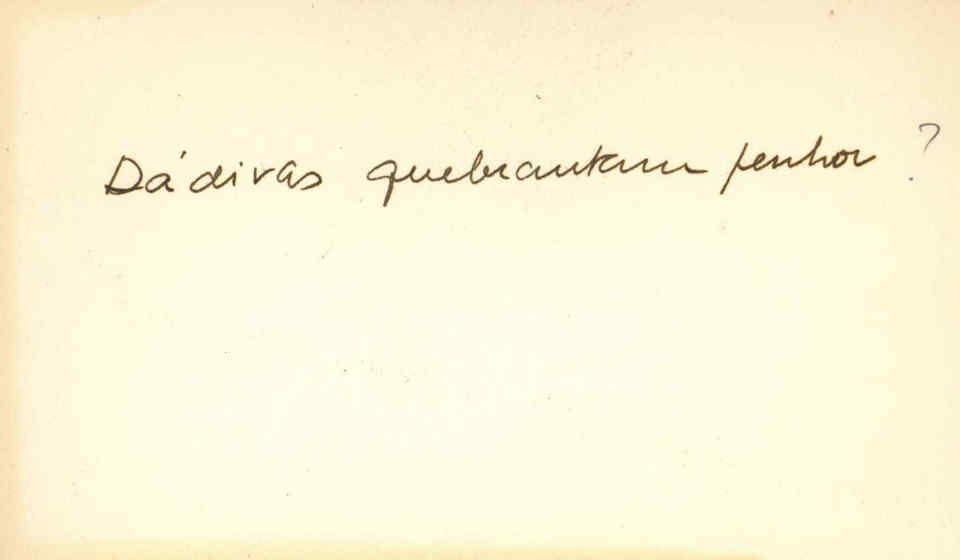 Dádivas quebrantam penhor ?